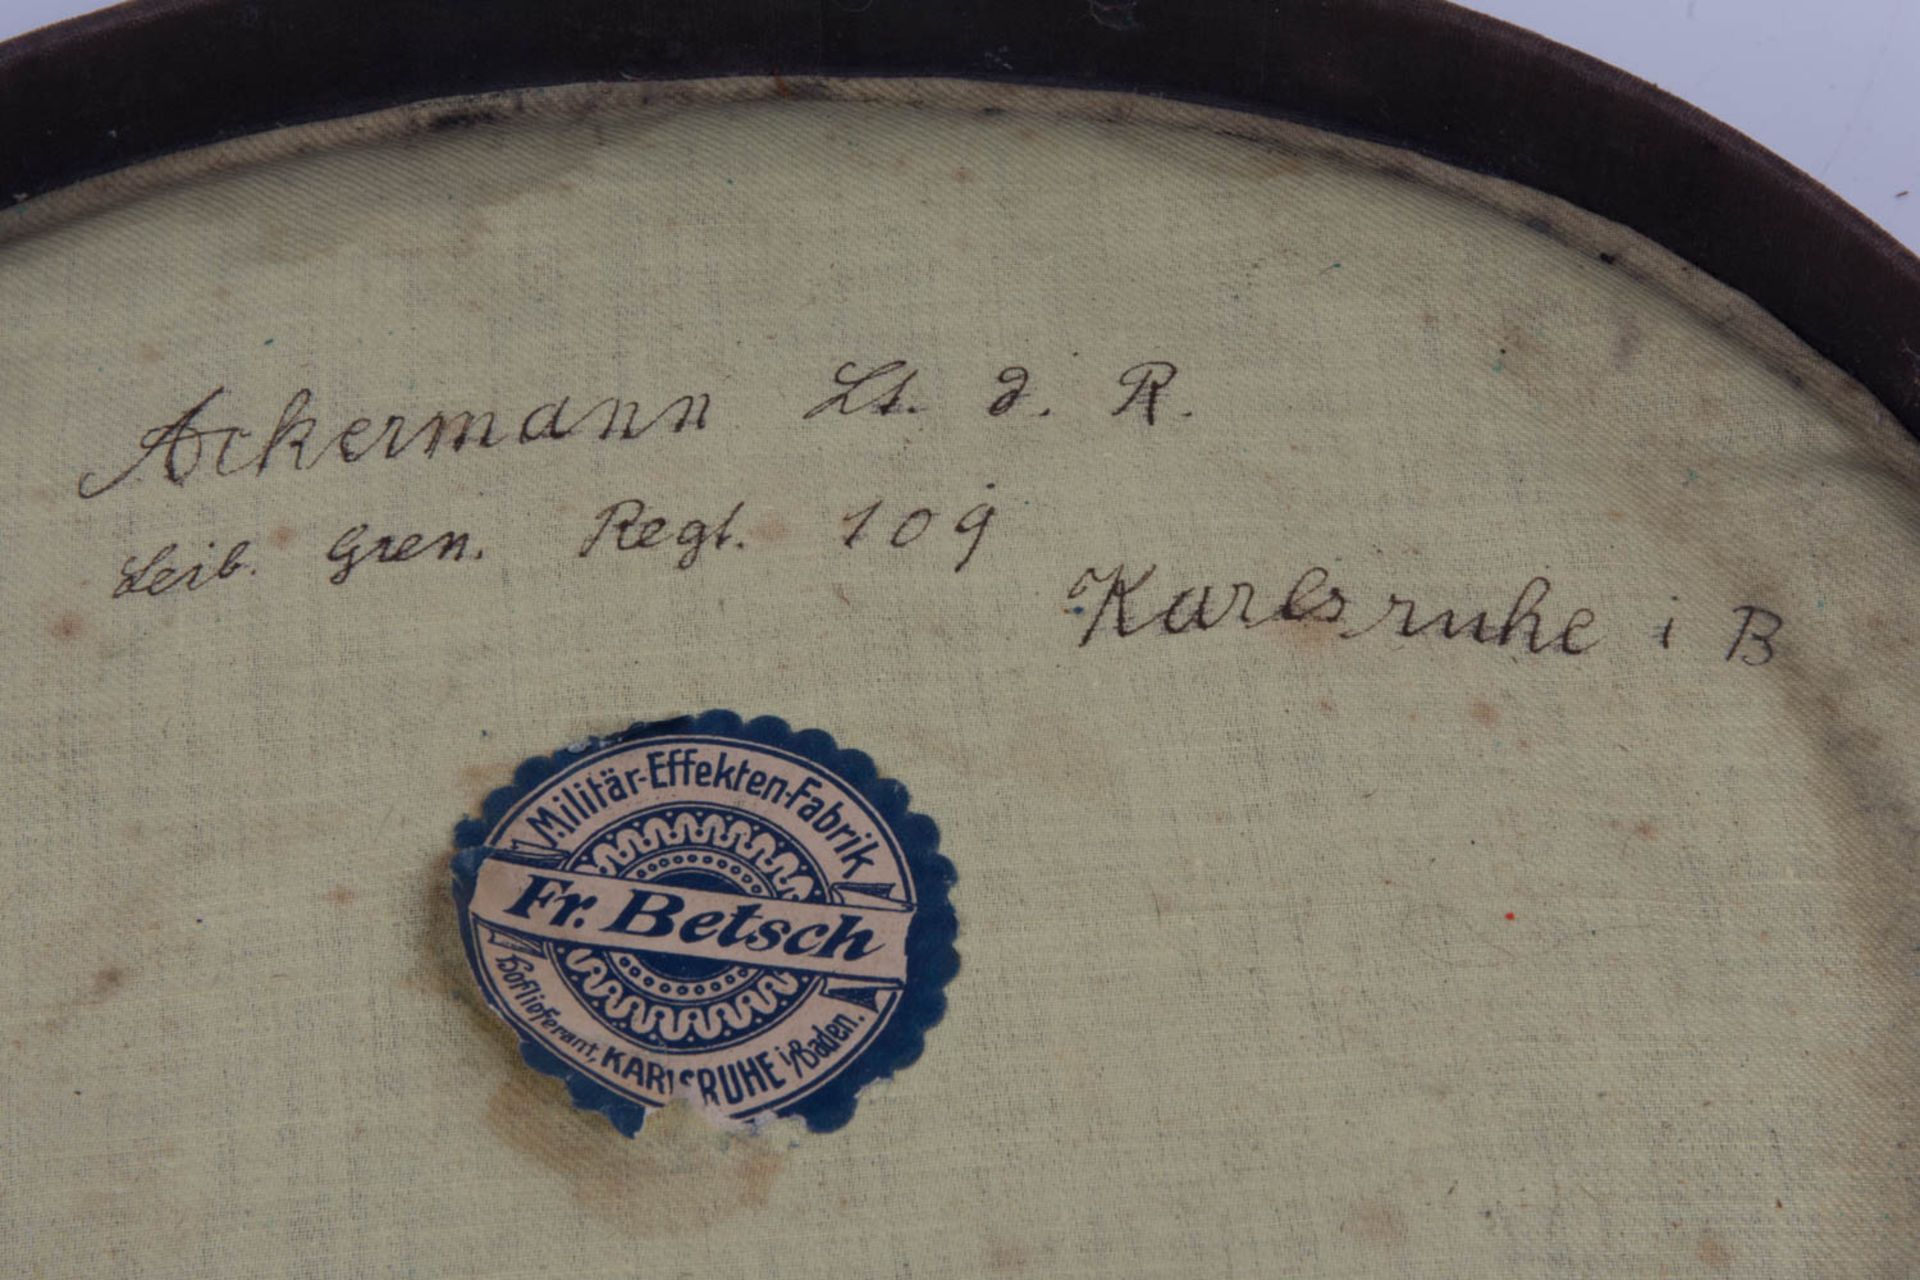 Ackermann Lt. d. R.
Leib. Gren. Regt. 109
Karlsruhe i B
Militär-Effekten-Fabrik
Fr. Betsch
Hoflieferant, KARLSRUHE i/Baden.